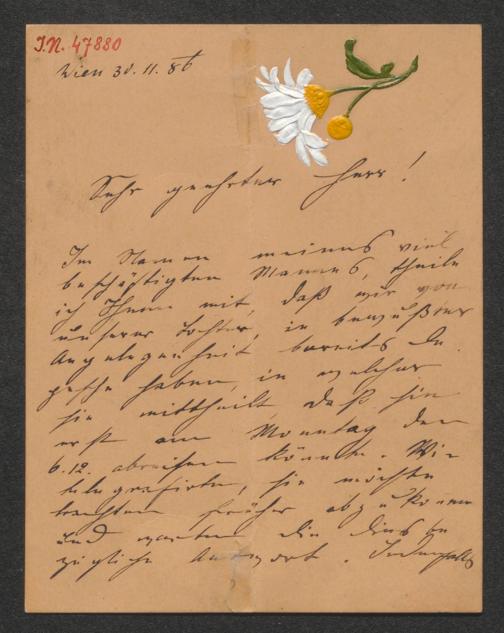 I.N. 47880
Wien 30.11.86
Sehr geehrter Herr!
Im Namen meines viel
beschäftigten Mannes, theile
ich Ihnen mit, daß wir von
unserer Tochter, in bewußter
Angelegenheit bereits De
pesche haben, in welcher
sie mittheilt, daß sie
erst am Montag den
6.12. abreisen könnte. Wir
telegrafirten, sie möchte
trachten früher abzukommen
und warten die dies be
zügliche Antwort. Jedenfalls